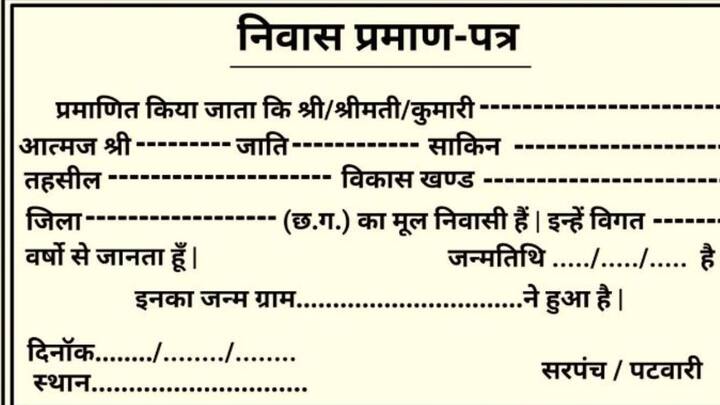 निवास प्रमाण-पत्र
प्रमाणित किया जाता कि श्री/श्रीमती/कुमारी ----------------------
आत्मज श्री --------- जाति------------ साकिन -------------------
तहसील --------------------- विकास खण्ड ----------------------
जिला------------------ (छ.ग.) का मूल निवासी हैं | इन्हें विगत -------
वर्षो से जानता हूँ | जन्मतिथि ...../...../..... है
इनका जन्म ग्राम...............................ने हुआ है |
दिनॉक......../......../........
स्थान..............................
सरपंच / पटवारी